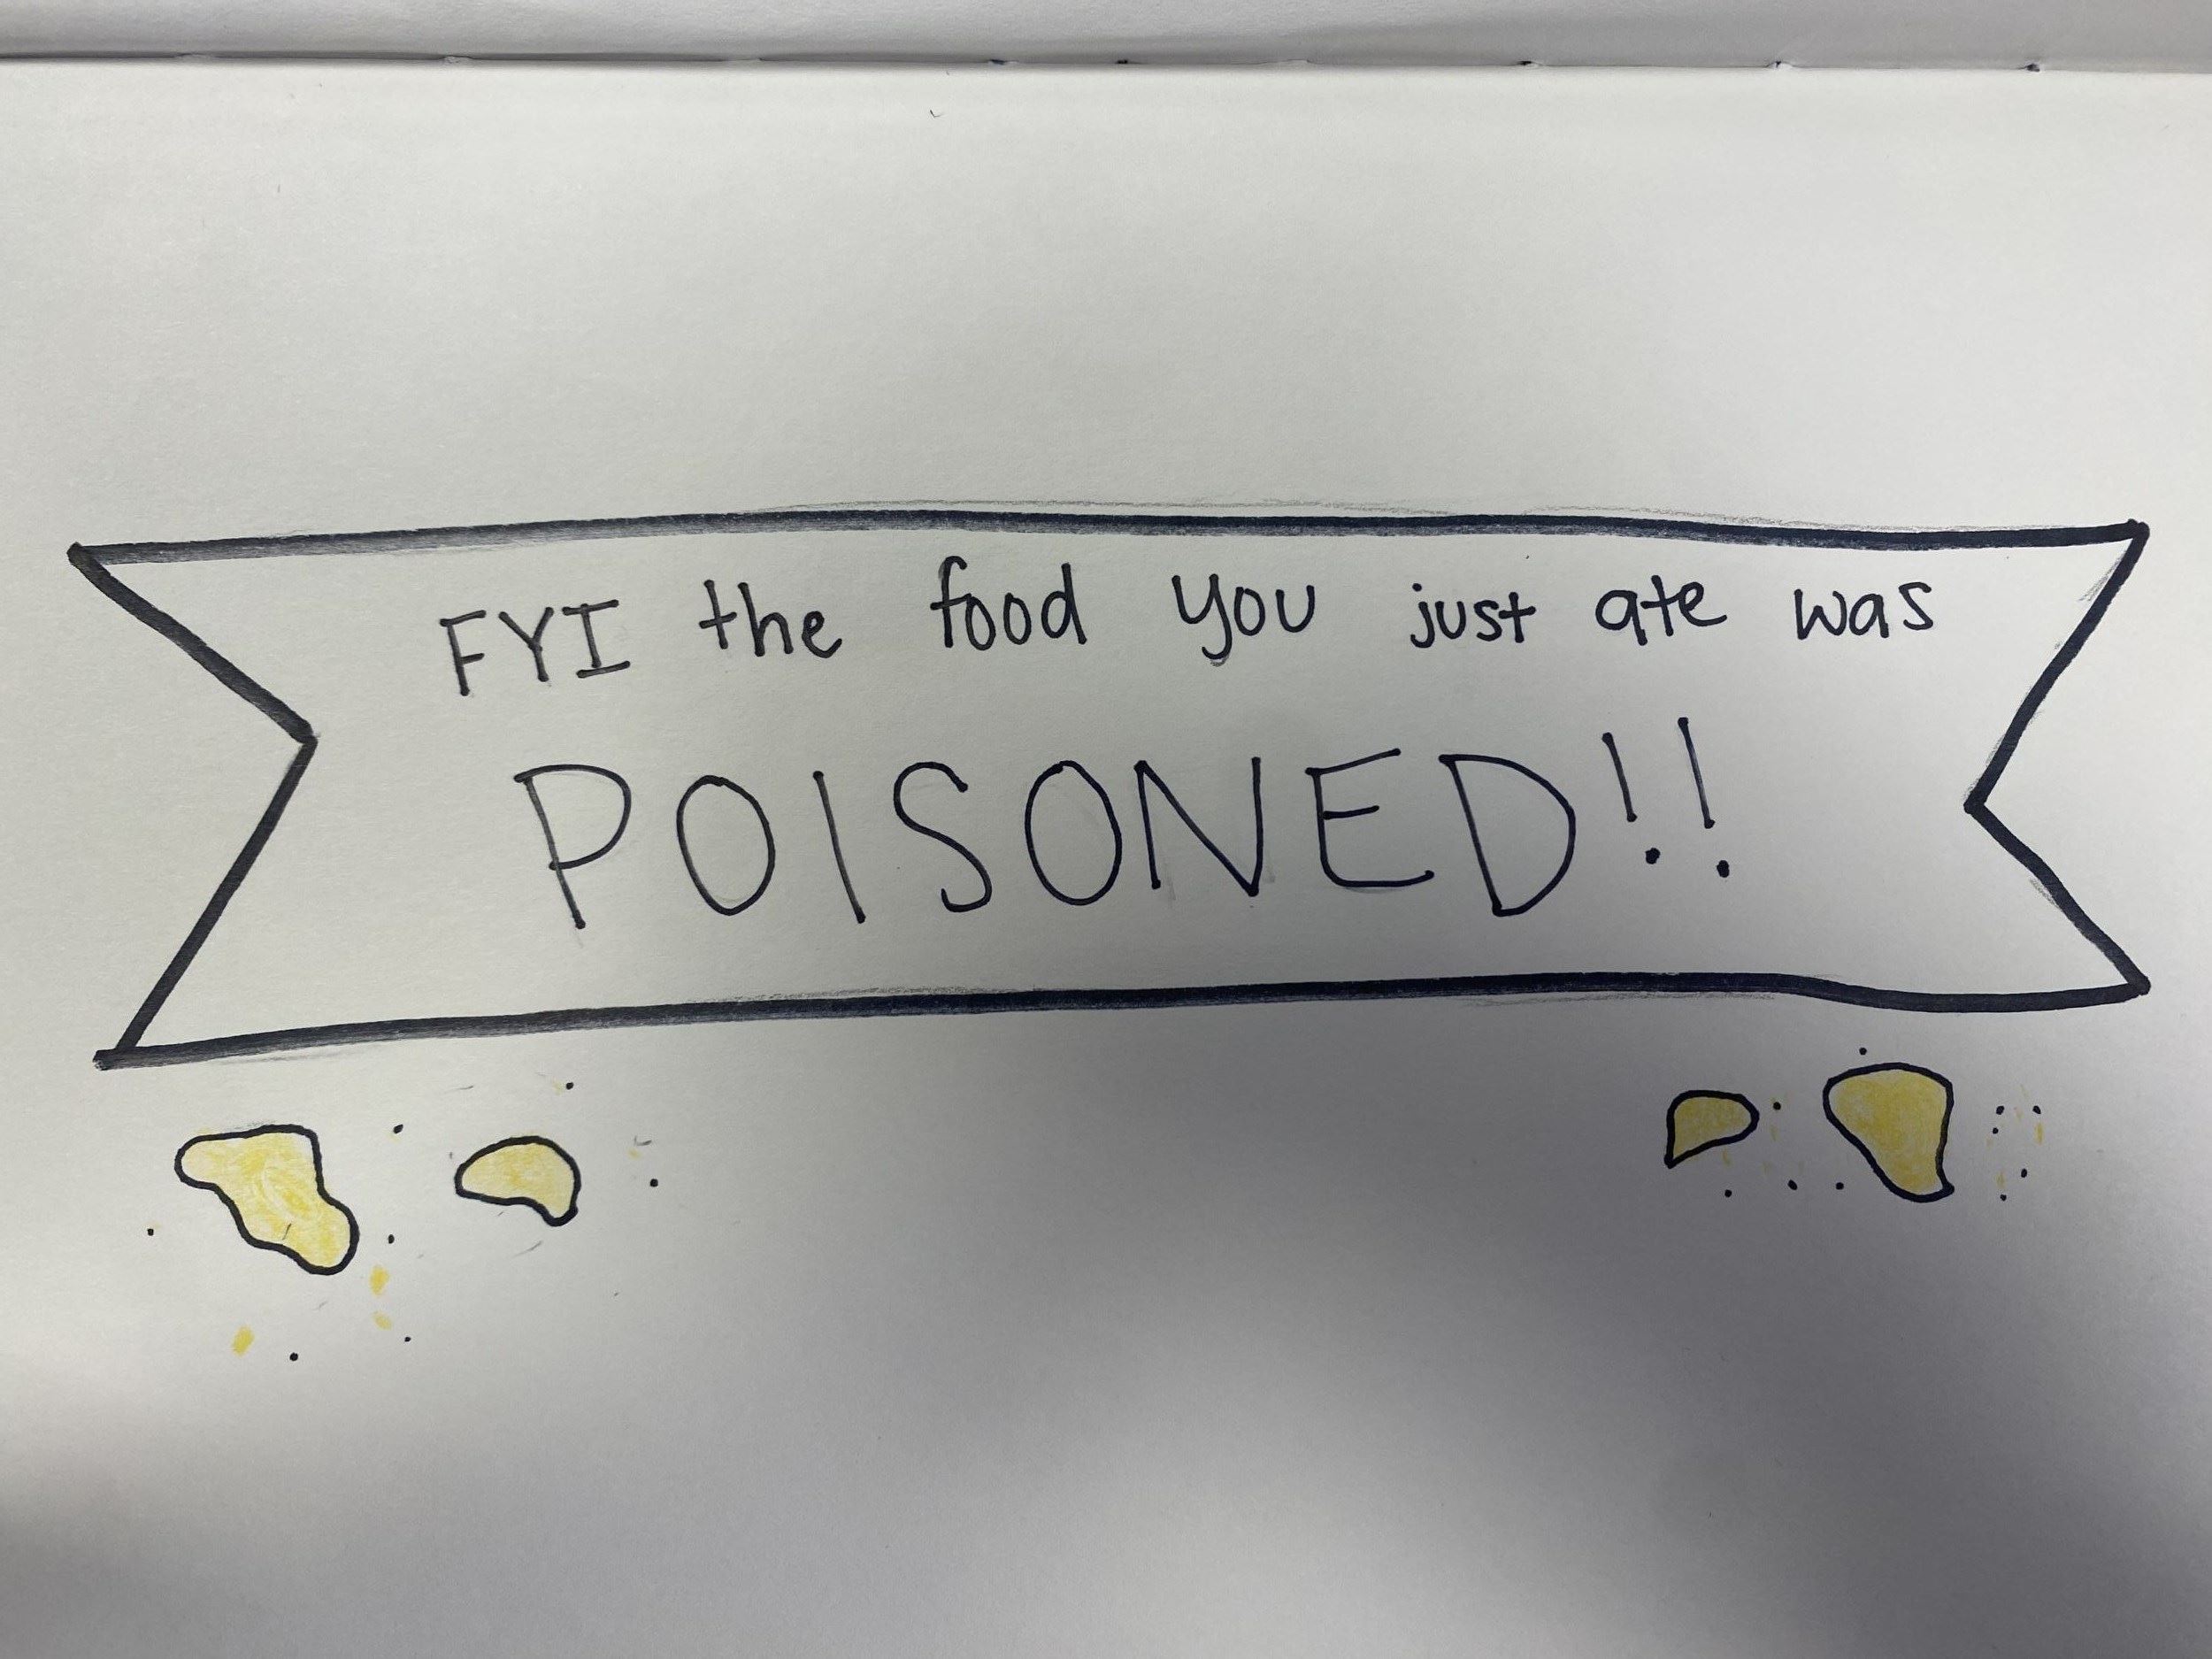 FYI the food you just ate was
POISONED!!